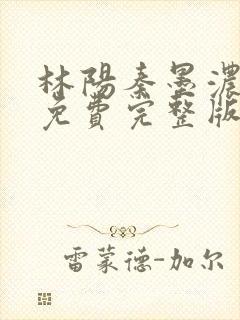 林陽秦墨濃
免費完整版
雷蒙德-加尔